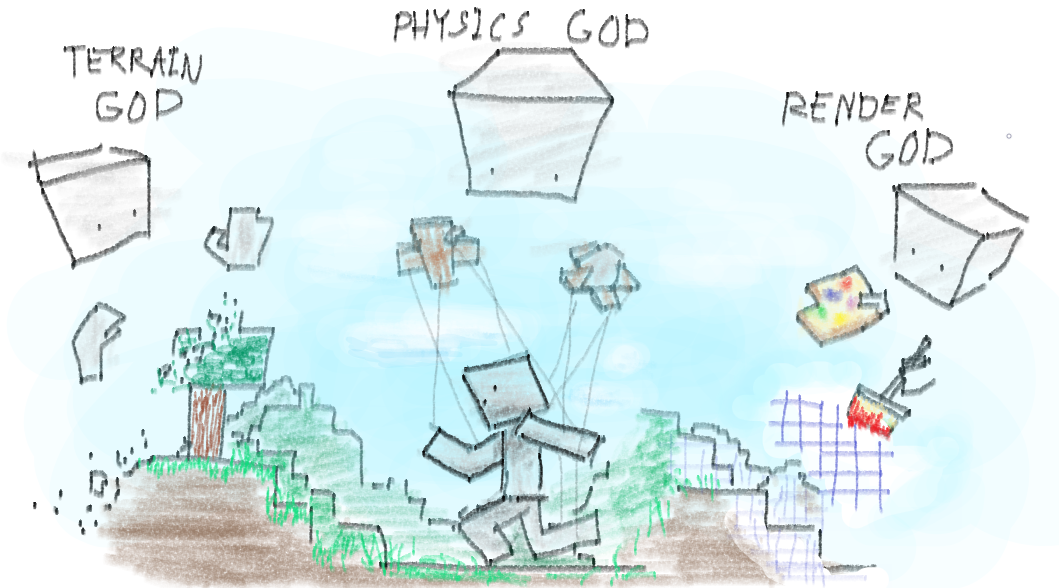 TERRAIN
GOD
PHYSICS GOD
RENDER
GOD